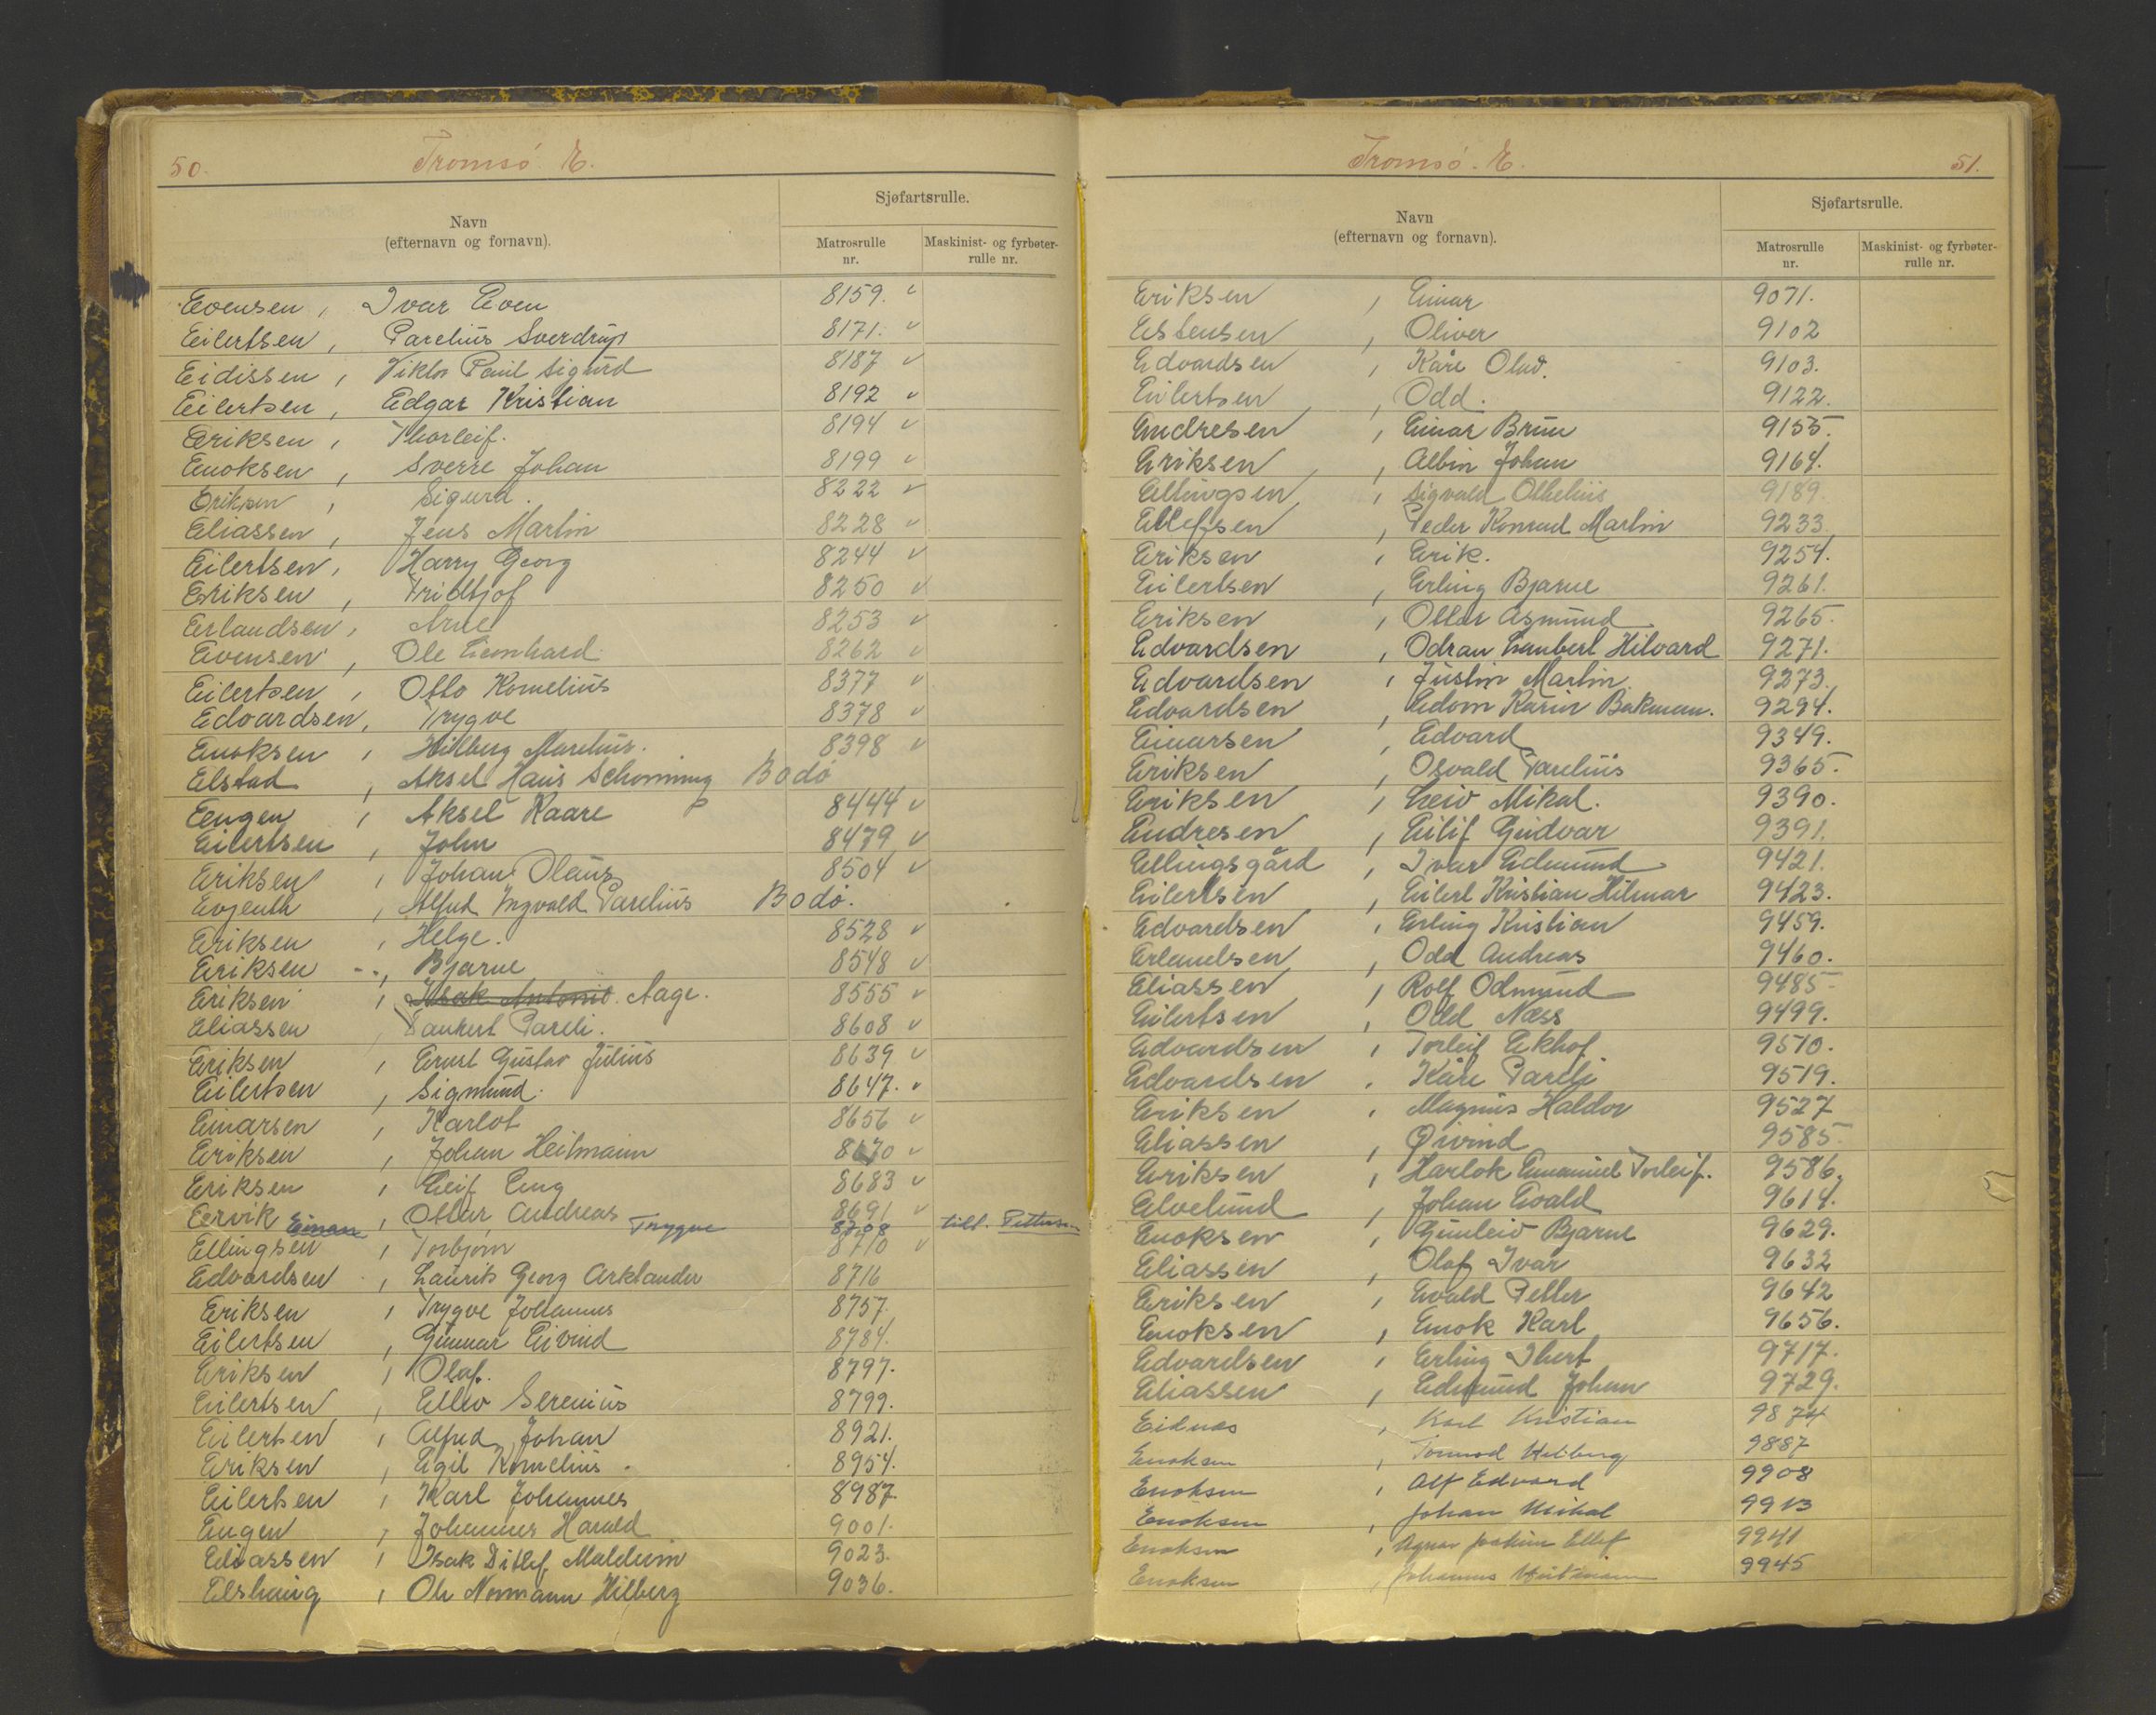 50. Tromsø E.
Navn
(efternavn og fornavn).
Sjøfartsrulle.
Matrosrulle
nr.
Maskinist- og fyrbøter-
rulle nr.
Evensen, Ivar Even 8159. v
Eilertsen, Parelius Sverdrup 8171. v
Eidissen, Viktor Paul Sigurd 8187 v
Eilertsen, Edgar Kristian 8192 v
Eriksen, Thorleif. 8194 v
Enoksen, Sverre Johan 8199 v
Eriksen, Sigurd. 8222 v
Eliassen, Jens Martin 8228 v
Eilertsen, Harry Georg 8244 v
Eriksen, Fridtjof 8250 v
Erlandsen, Arne 8253 v
Evensen, Ole Leonhard 8262 v
Eilertsen, Otto Kornelius 8377 v
Edvardsen, Trygve 8378 v
Enoksen, Hilberg Marelius. 8398 v
Elstad, Aksel Hans Schønning Bodø
Engen, Aksel Kaare 8444 v
Eilertsen, John 8479 v
Eriksen, Johan Olaus 8504 v
Evjenth, Alfred Ingvald Parelius Bodø.
Eriksen, Helge. 8528 v
Eriksen, Bjarne 8548 v
Eriksen, Isak Antonit. Aage. 8555 v
Eliassen, Pareli. 8608 v
Eriksen, Ernst Gustav Julius 8639 v
Eilertsen, Sigmund. 8647. v
Einarsen, Karlot 8656 v
Eriksen, Johan Heitmann 8670 v
Eriksen, Leif Eng 8683 v
Eervik, Ottar Andreas 8691 v
Einar Trygve 8708 till. Pettersen
Ellingsen, Torbjørn 8710 v
Edvardsen, Laurits Georg Arklander 8716
Eriksen, Trygve Johannes 8757.
Eilertsen, Gunnar Eivind 8784.
Eriksen, Olaf. 8797.
Eilertsen, Ellev Serenius 8799.
Eilertsen, Alfred Johan 8921.
Eriksen, Egil Kornelius. 8954.
Eilertsen, Karl Johannes 8987.
Engen, Johannes Harald 9001.
Eliassen, Isak Ditlef Maldum 9023.
Elshaug, Ole Normann Hilberg 9036.
Tromsø. E. 51.
Navn
(efternavn og fornavn).
Sjøfartsrulle.
Matrosrulle
nr.
Maskinist- og fyrbøter-
rulle nr.
Eriksen, Einar 9071.
Estensen, Oliver 9102
Edvardsen, Kåre Olav. 9103.
Eilertsen, Odd. 9122.
Endresen, Einar Brun 9155.
Eriksen, Albin Johan 9164.
Ellingsen, Sigvald Othelius 9189.
Ellefsen, Peder Konrad Martin 9233.
Eriksen, Erik. 9254.
Eilertsen, Erling Bjarne 9261.
Eriksen, Ottar Asmund 9265.
Edvardsen, Odran Lambert Hilvard 9271.
Edvardsen, Justin Martin 9273.
Edvardsen, Edom Karin Bakman. 9294.
Einarsen, Edvard 9349.
Eriksen, Osvald Parelius 9365.
Eriksen, Leiv Mikal. 9390.
Endresen, Eilif Gudvar 9391.
Ellingsgård, Ivar Edmund 9421.
Eilertsen, Eilert Kristian Hilmar 9423.
Edvardsen, Erling Kristian 9459.
Erlandsen, Odd Andreas 9460.
Eliassen, Rolf Odmund 9485
Eilertsen, Odd Næss 9499.
Edvardsen, Torleif Ekhof 9510.
Edvardsen, Kåre Pareli 9519.
Eriksen, Magnus Haldor 9527
Eliassen, Øivind 9585.
Eriksen, Harlok Emanuel Torleif. 9586.
Elvelund, Johan Evald 9614.
Enoksen, Gunleiv Bjarne 9629.
Eliassen, Olaf Ivar 9632
Eriksen, Evald Petter 9642
Enoksen, Enok Karl 9656.
Edvardsen, Erling Ibert 9717.
Eliassen, Edmund Johan 9729.
Eidnes, Karl Kristian 9874
Enoksen, Tormod Hilberg 9887
Enoksen, Alf Edvard 9908
Enoksen, Johan Mikal 9913
Enoksen, Agnar Joakim Ellef 9941
Enoksen, Johannes Heitmann 9945